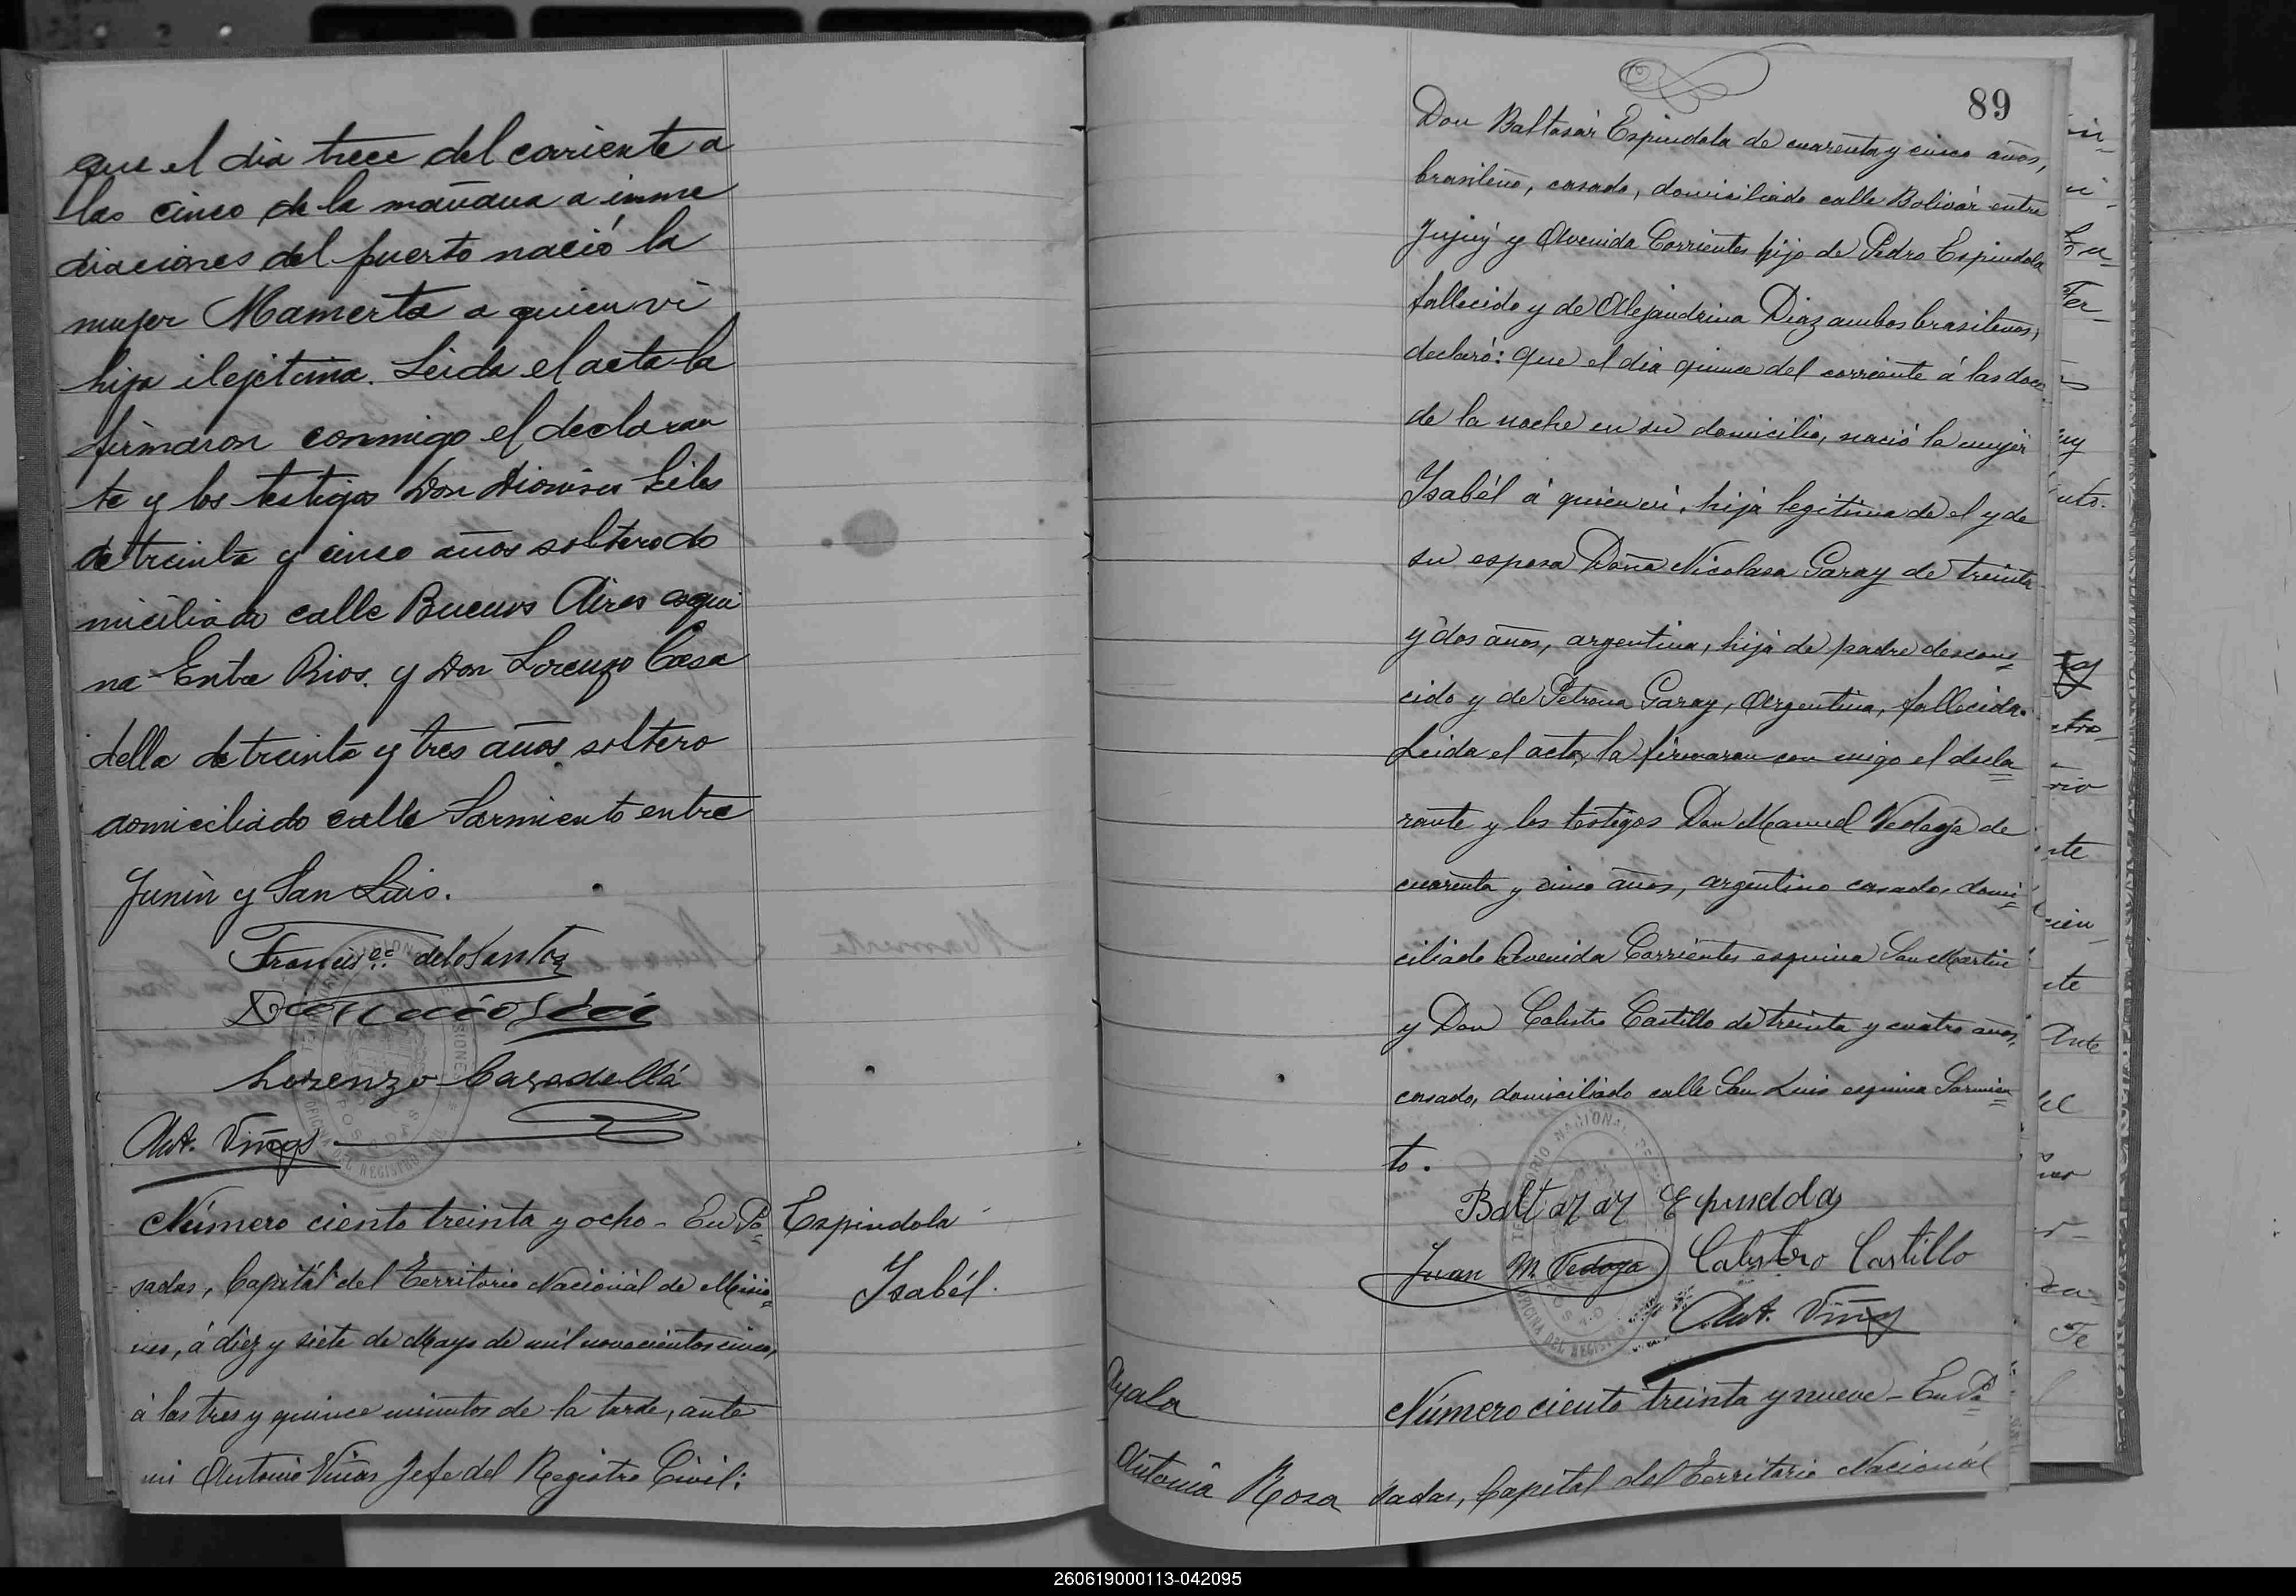 que el dia trece del coriente a
las cinco de la mañana a inme
diaciones del puerto nació la
mujer Mamerta a quien vi
hija ilejitima. Leida el acta la
firmaron conmigo el declaran
te y los testigos Don Dionisio
de treinta y cinco años soltero do
miciliado calle Buenos Aires esqui
na Entre Rios. y Don Lorenzo Casa
della de treinta y tres años soltero
domiciliado calle Sarmiento entre
Junin y San Luis.
Lorenzo Casadellá
Ant. Viñas
Número ciento treinta y ocho - En Po=
sadas, Capitál del Territorio Nacionál de Misio=
nes, á diez y siete de Mayo de mil novecientos cinco,
á las tres y quince minutos de la tarde, ante
mi Antonio Viñas Jefe del Registro Civil:
Espindola
Isabél.
89
Don Baltasár Espindola de cuarenta y cinco años,
brasileño, casado, domiciliado calle Bolivár entre
Jujuy y Avenida Corrientes hijo de Pedro Espindola
fallecido y de Alejandrina Diaz ambos brasileños,
declaró: que el dia quince del corriente á las doce
de la noche en su domicilio, nació la mujér
Isabél á quien vi, hija legitima de el y de
su esposa Doña Nicolasa Garay de treinta
y dos años, argentina, hija de padre descono=
cido y de Petrona Garay, Argentina, fallecida.
Leida el acta, la firmaron con migo el decla=
rante y los testigos Don Manuel Vedoya de
cuarenta y cinco años, argentino casado, domi=
ciliado Avenida Corrientes esquina San Martin
y Don Calistro Castillo de treinta y cuatro años,
casado, domiciliado calle San Luis esquina Sarmien=
to.
Baltazar
Juan M. Vedoya Calistro Castillo
Ant. Viñas
Ayala
Antonia Rosa
Número ciento treinta y nueve - En Po=
sadas, Capital del Territorio Nacionál
260619000113-042095